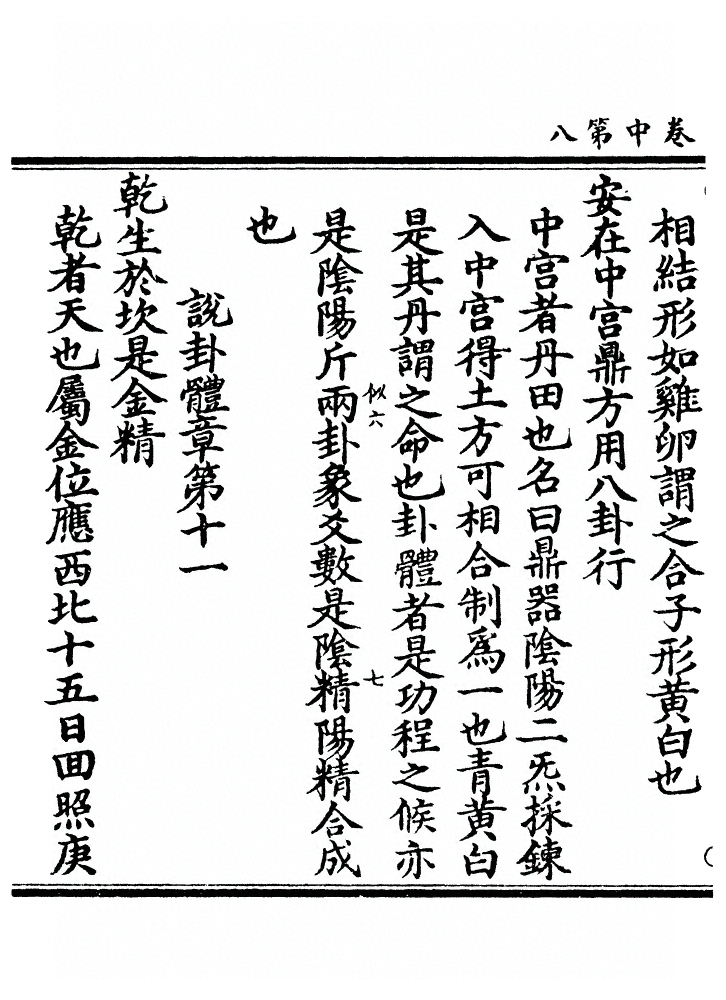 卷中第八
相結形如雞卵謂之合子形黃白也
安在中宮鼎方用八卦行
中宮者丹田也名曰鼎器陰陽二炁採鍊
入中宮得土方可相合制爲一也青黃白
是其丹謂之命也卦體者是功程之候亦
似六
七
是陰陽斤兩卦象爻數是陰精陽精合成
也
說卦體章第十一
乾生於坎是金精
乾者天也屬金位應西北十五日回照庚